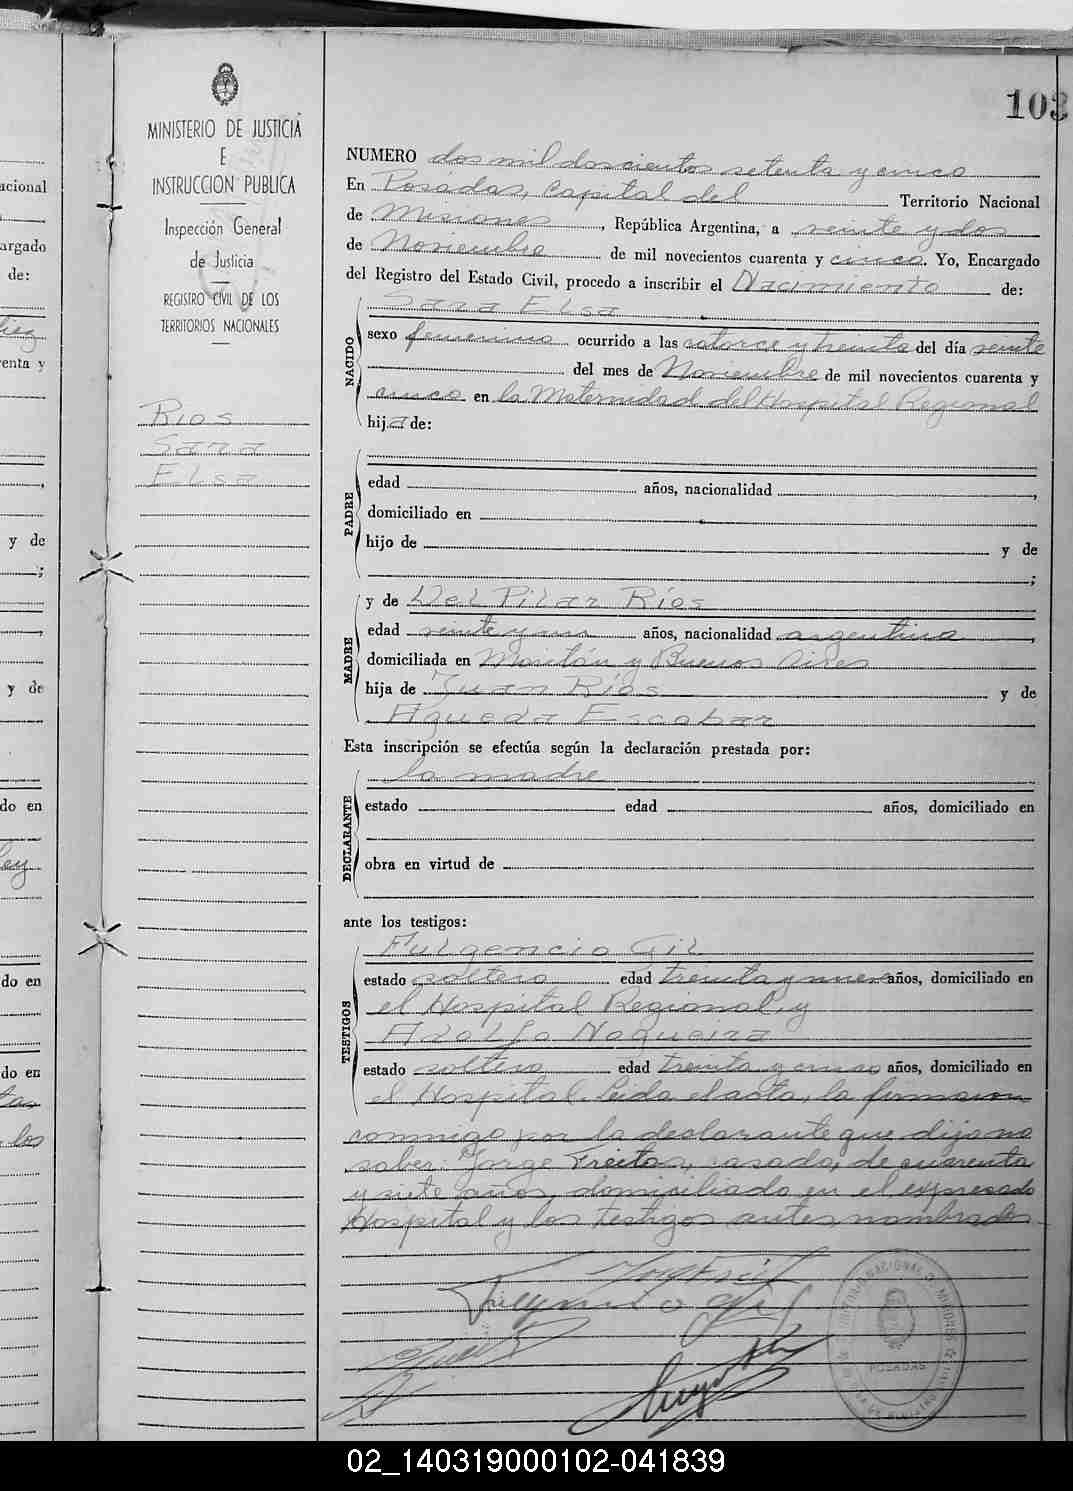 103
MINISTERIO DE JUSTICIA
E
INSTRUCCION PUBLICA
Inspección General
de Justicia
REGISTRO CIVIL DE LOS
TERRITORIOS NACIONALES
Rios
Sara
Elsa
NUMERO dos mil doscientos setenta y cinco
En Posadas, capital del Territorio Nacional
de Misiones, República Argentina, a veinte y dos
de Noviembre de mil novecientos cuarenta y cinco. Yo, Encargado
del Registro del Estado Civil, procedo a inscribir el Nacimiento de:
NACIDO
Sara Elsa
sexo femenino ocurrido a las catorce y treinta del día veinte
del mes de Noviembre de mil novecientos cuarenta y
cinco en la Maternidad del Hospital Regional
hija de:
PADRE
edad años, nacionalidad ,
domiciliado en
hijo de y de
;
MADRE
y de Del Pilar Ríos
edad veinte y un años, nacionalidad argentina,
domiciliada en y Buenos Aires
hija de Juan Ríos y de
Agueda Escobar
Esta inscripción se efectúa según la declaración prestada por:
DECLARANTE
la madre
estado edad años, domiciliado en
obra en virtud de
ante los testigos:
TESTIGOS
Fulgencio Gil
estado soltero edad treinta y nueve años, domiciliado en
el Hospital Regional, y
Adolfo Nogueira
estado soltero edad treinta y cinco años, domiciliado en
el Hospital. Leida el acta, la firmaron
conmigo por la declarante que dijo no
saber: Jorge Freitas, casado, de cuarenta
y siete años, domiciliado en el expresado
Hospital y los testigos antes nombrados
POSADAS
02_140319000102-041839